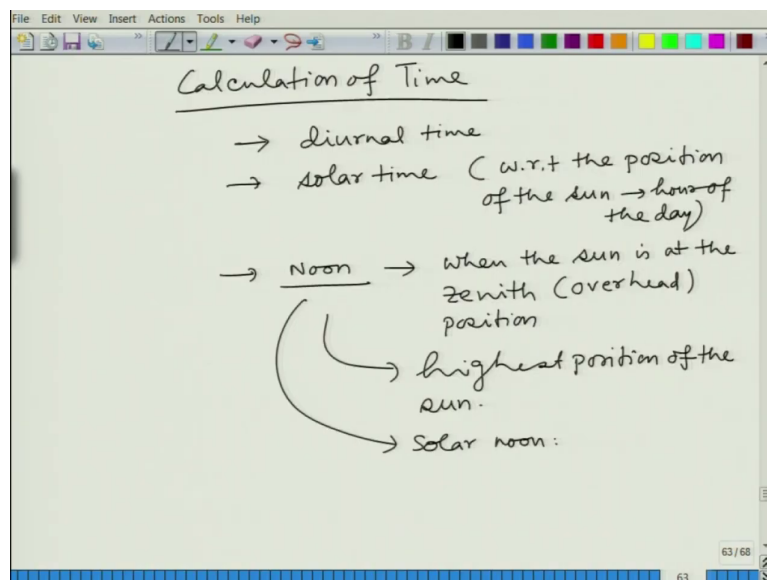 File Edit View Insert Actions Tools Help
B I
Calculation of Time
→ diurnal time
→ solar time ( w.r.t the position
of the sun → hour of
the day)
→ Noon → when the sun is at the
zenith (overhead)
position
→ highest position of the
sun.
→ Solar noon:
63 / 68
63